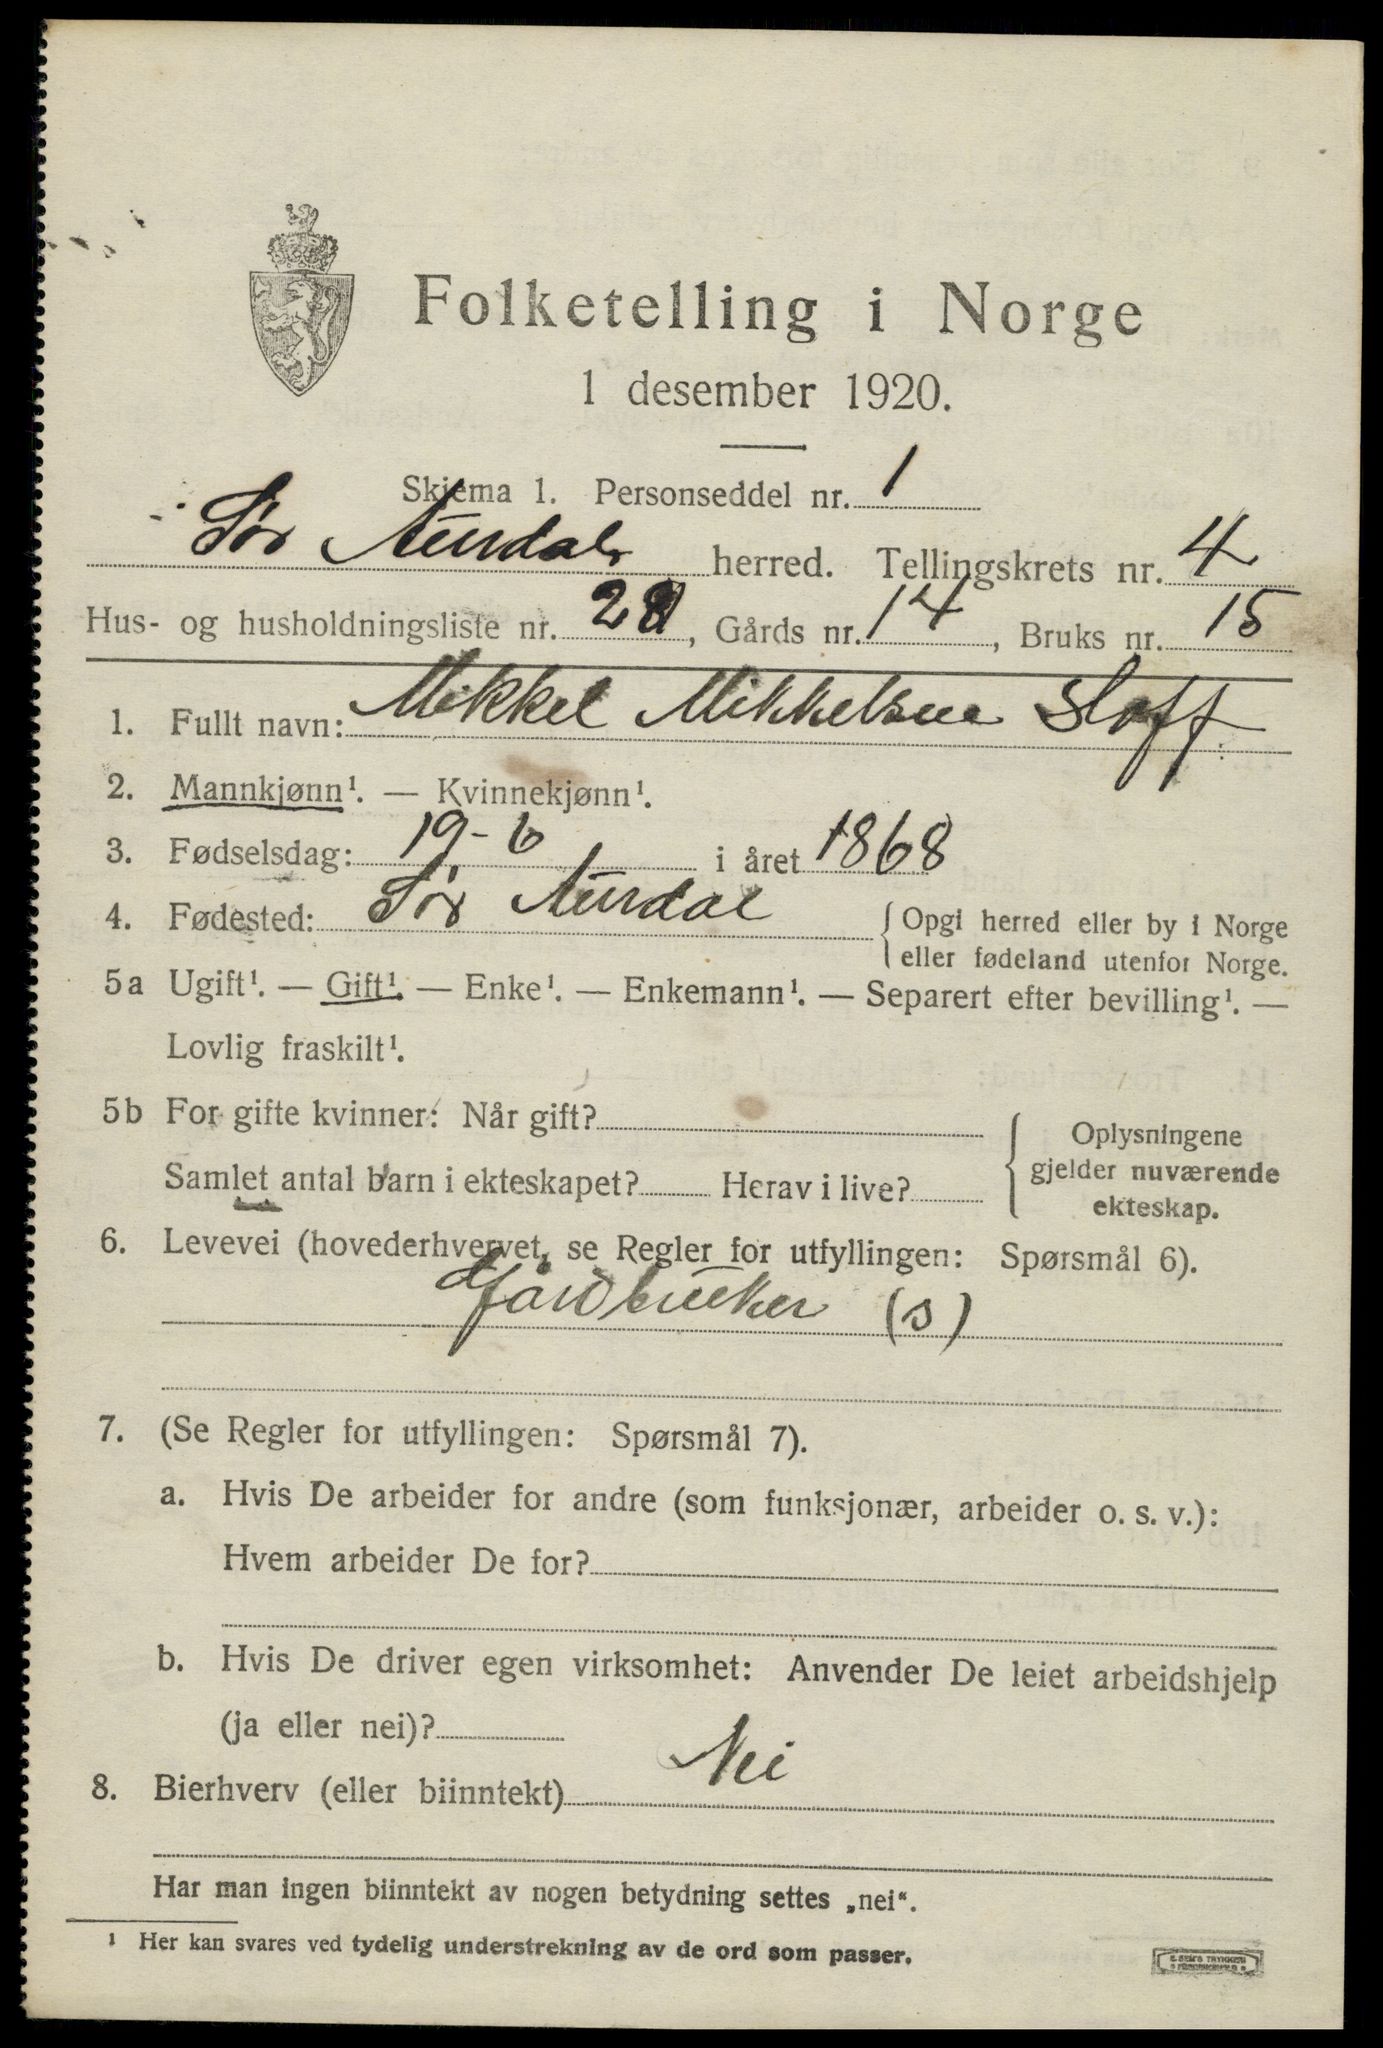 Folketelling i Norge
1 desember 1920.
Skjema 1. Personseddel nr. 1
Sør Aurdal herred. Tellingskrets nr. 4
Hus- og husholdningsliste nr. 28, Gårds nr. 14, Bruks nr. 15
1. Fullt navn: Mikkel Mikkelsen Sloff
2. Mannkjønn¹. — Kvinnekjønn¹.
3. Fødselsdag: 19-6 i året 1868
4. Fødested: Sør Aurdal {Opgi herred eller by i Norge
eller fødeland utenfor Norge.
5a Ugift¹. — Gift¹. — Enke¹. — Enkemann¹. — Separert efter bevilling¹. —
Lovlig fraskilt¹.
5b For gifte kvinner: Når gift? {Oplysningene
gjelder nuværende
ekteskap.
Samlet antal barn i ekteskapet? Herav i live?
6. Levevei (hovederhvervet, se Regler for utfyllingen: Spørsmål 6).
Jordbruker (s)
7. (Se Regler for utfyllingen: Spørsmål 7).
a. Hvis De arbeider for andre (som funksjonær, arbeider o. s. v.):
Hvem arbeider De for?
b. Hvis De driver egen virksomhet: Anvender De leiet arbeidshjelp
(ja eller nei)?
8. Bierhverv (eller biinntekt) Nei
Har man ingen biinntekt av nogen betydning settes „nei“.
¹ Her kan svares ved tydelig understrekning av de ord som passer.